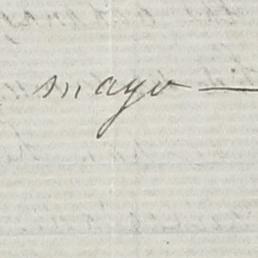 mayo —